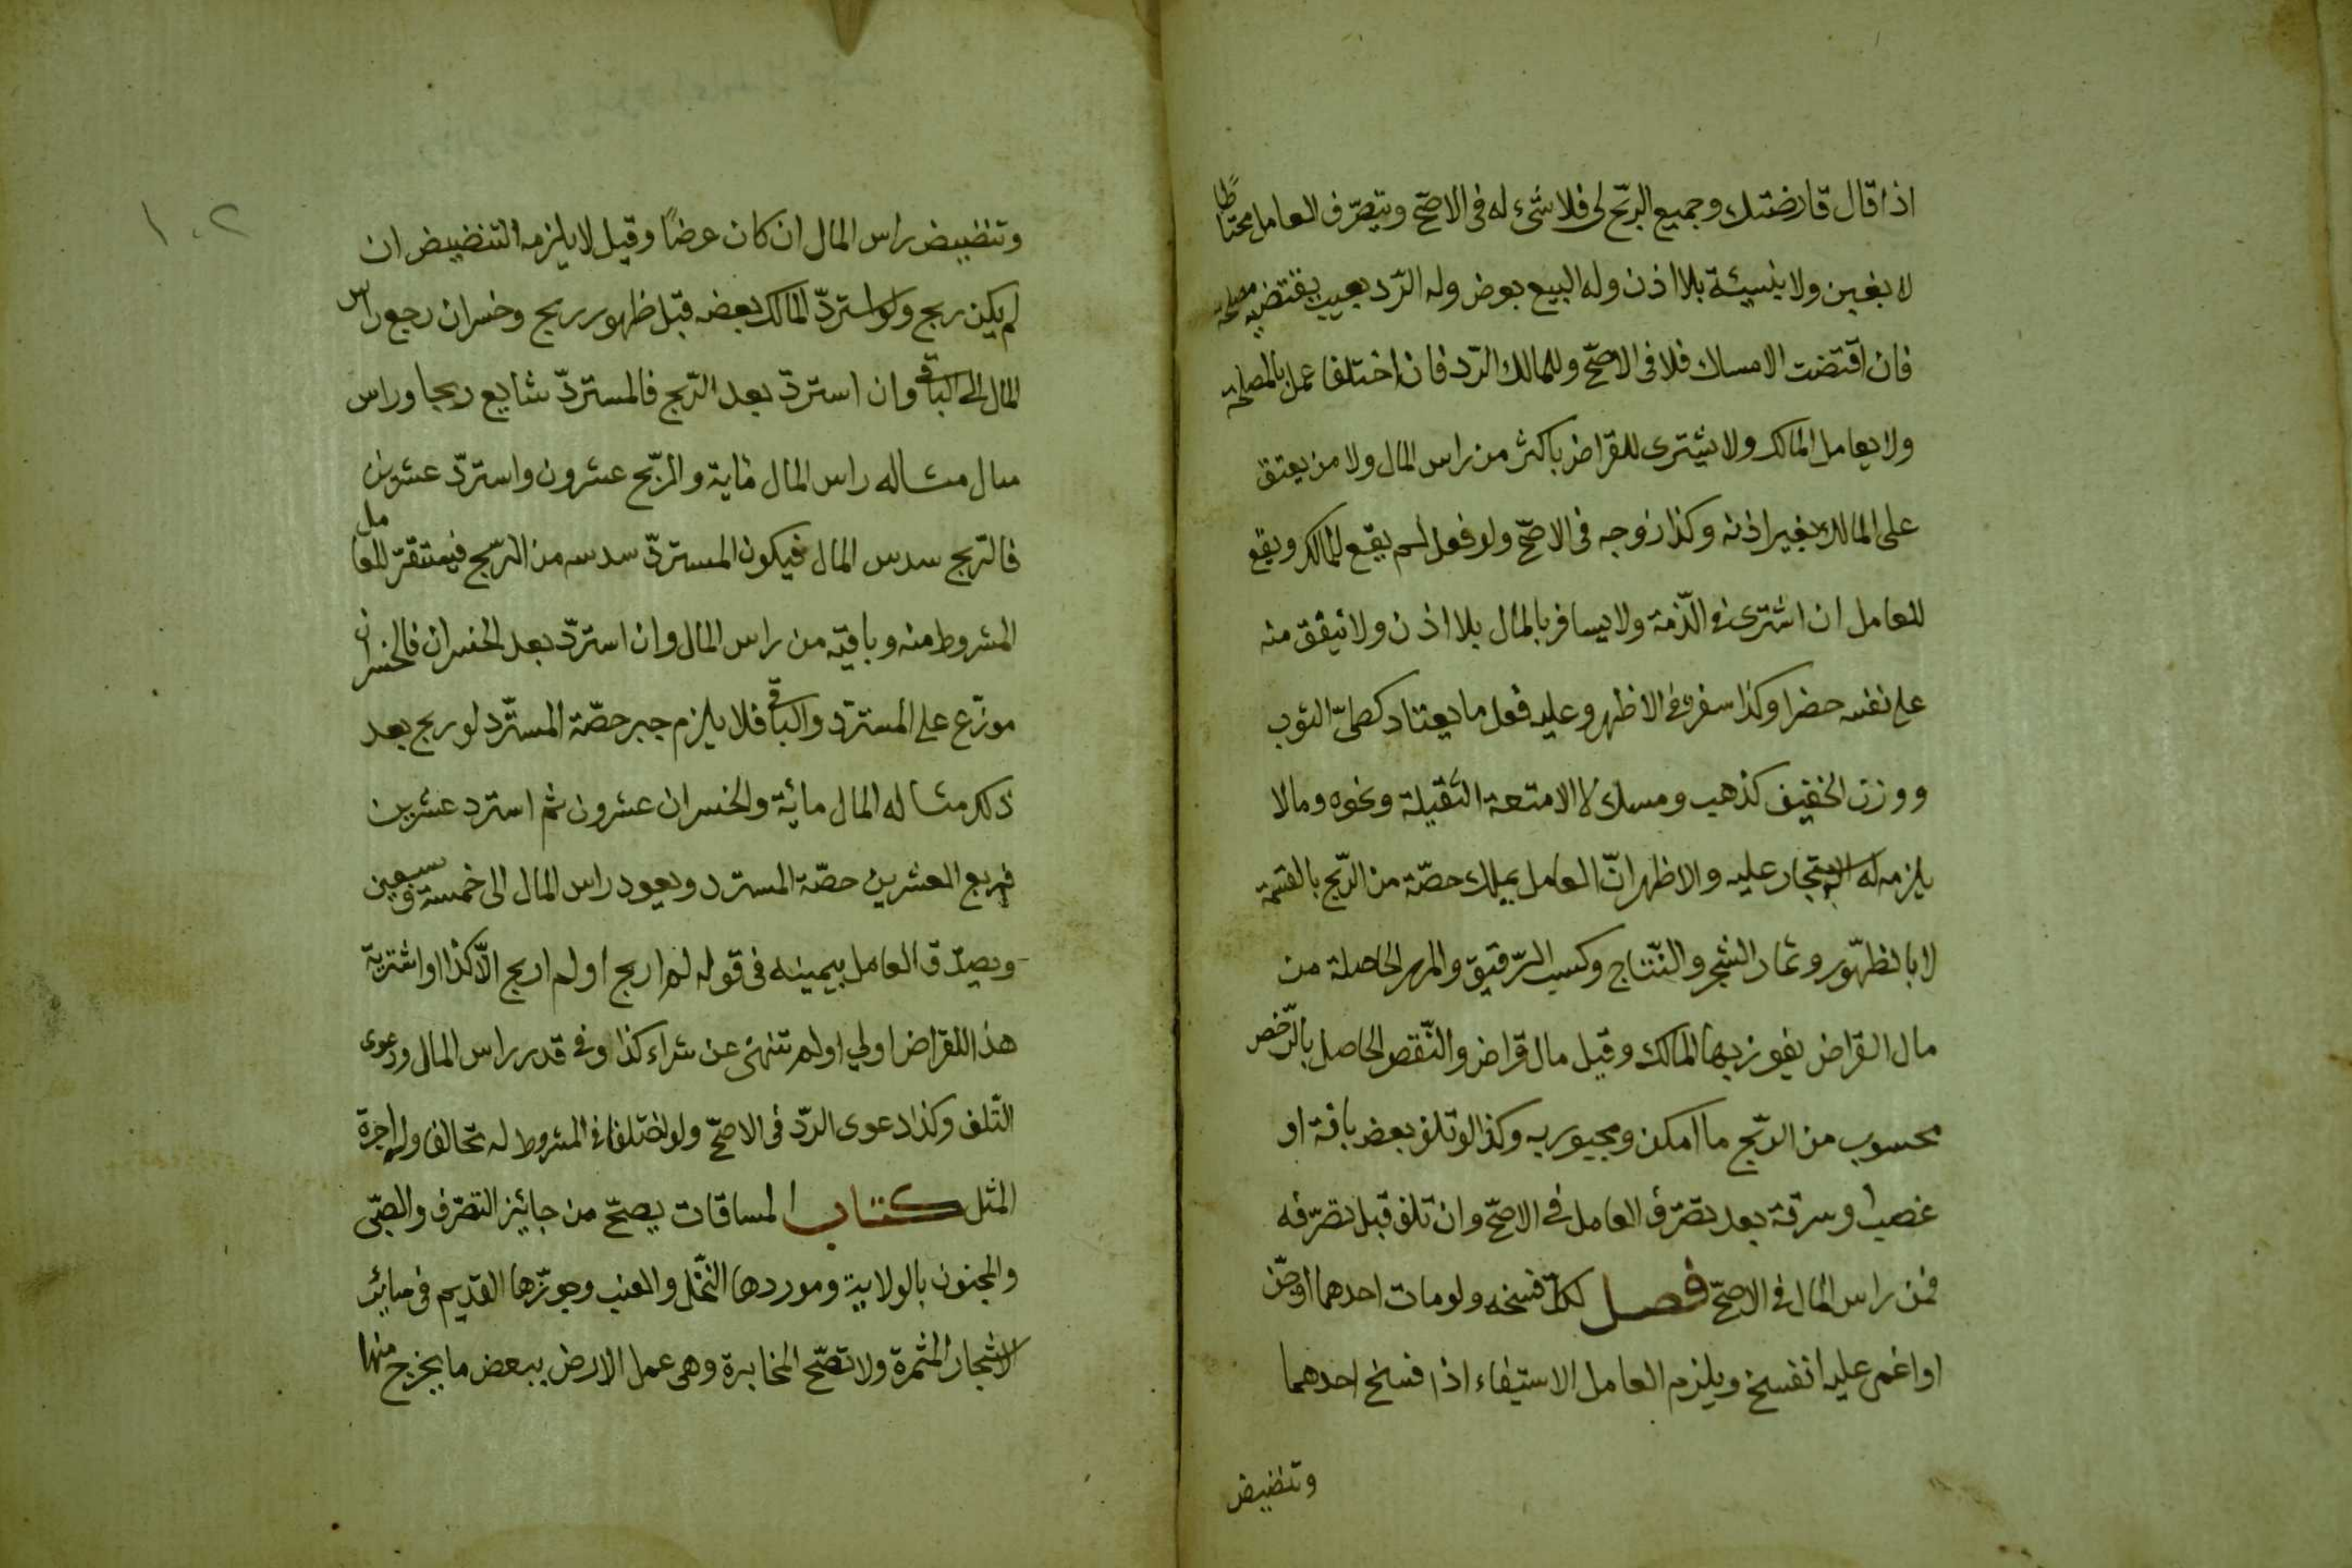 اذا قال قارضتك وجميع الربح لى فلا شىء له فى الاصحّ ويتصرّف العامل محتاطًا
لا بغبن ولا بنسيئة بلا اذن وله البيع بعرض وله الرّد بعيب يقتضيه مصلحة
فان اقتضت الامساك فلا فى الاصحّ وللمالك الرّد فان اختلفا عمل بالمصلحة
ولا يعامل المالك ولا يشترى للقراض باكثر من راس المال ولا من يعتق
على المالك بغير اذنه وكذا زوجه فى الاصحّ ولو فعل لم يقع للمالك ويقع
للعامل ان اشترى فى الذّمة ولا يسافر بالمال بلا اذن ولا ينفق منه
على نفسه حضرا وكذا سفرا فى الاظهر وعليه فعل ما يعتاد كطىّ الثوب
ووزن الخفيف كذهب ومسك لا الامتعة الثقيلة ونحوه ومالا
يلزمه له الاستجار عليه والاظهر انّ العامل يملك حصّة من الرّبح بالقسمة
لا بالظهّور وثمار الشجر والنّتاج وكسب الرّقيق والمهر الحاصلة من
مال القراض يفوز بها المالك وقيل مال قراض والنّقص الحاصل بالرّخص
محسوب من الربّح ما امكن ومجبور به وكذا لو تلف بعض بافة او
غصب او سرقة بعد تصرّف العامل فى الاصحّ وان تلف قبل تصرّفه
فمن راس المال فى الاصحّ فصل لكلّ فسخه ولو مات احدهما او جنّ
او اغمى عليه انفسخ ويلزم العامل الاستيفاء اذا فسخ احدهما
وتنضيض
١٠٢
وتنضيض راس المال ان كان عرضًا وقيل لا يلزمه التنضيض ان
لم يكن ربح ولو استردّ المالك بعضه قبل ظهور ربح وخسران رجع راس
المال الى الباقى وان استردّ بعد الرّبح فالمستردّ شايع ربحا وراس
مال مثاله راس المال ماية والربّح عشرون واستردّ عشرين
فالرّبح سدس المال فيكون المستردّ سدسه من الرّبح فيستقرّ للعامل
المشروط منه وباقيه من راس المال وان استردّ بعد الخسران فالخسران
موزّع على المستردّ والباقى فلا يلزم جبر حصّة المستّرد لو ربح بعد
ذلك مثاله المال مائة والخسران عشرون ثم استرد عشرين
فربع العشرين حصّة المسترد ويعود راس المال الى خمسة وسبعين
ويصدّق العامل بيمينه فى قوله لم اربح او لم اربح الّا كذا او اشتريت
هذا للقراض او لي او لم تنهنى عن شراء كذا وفى قدر راس المال ودعوى
التّلف وكذا دعوى الردّ فى الاصحّ ولو اختلفا فى المشروط له تحالفا وله اجرة
المثل كتاب المساقات يصحّ من جائيز التصّرف والصّبى
والمجنون بالولاية وموردها النّخل والعنب وجوّزها القديم فى سائر
الاشجار المثمرة ولا تصّح المخابرة وهى عمل الارض ببعض ما يخرج منها